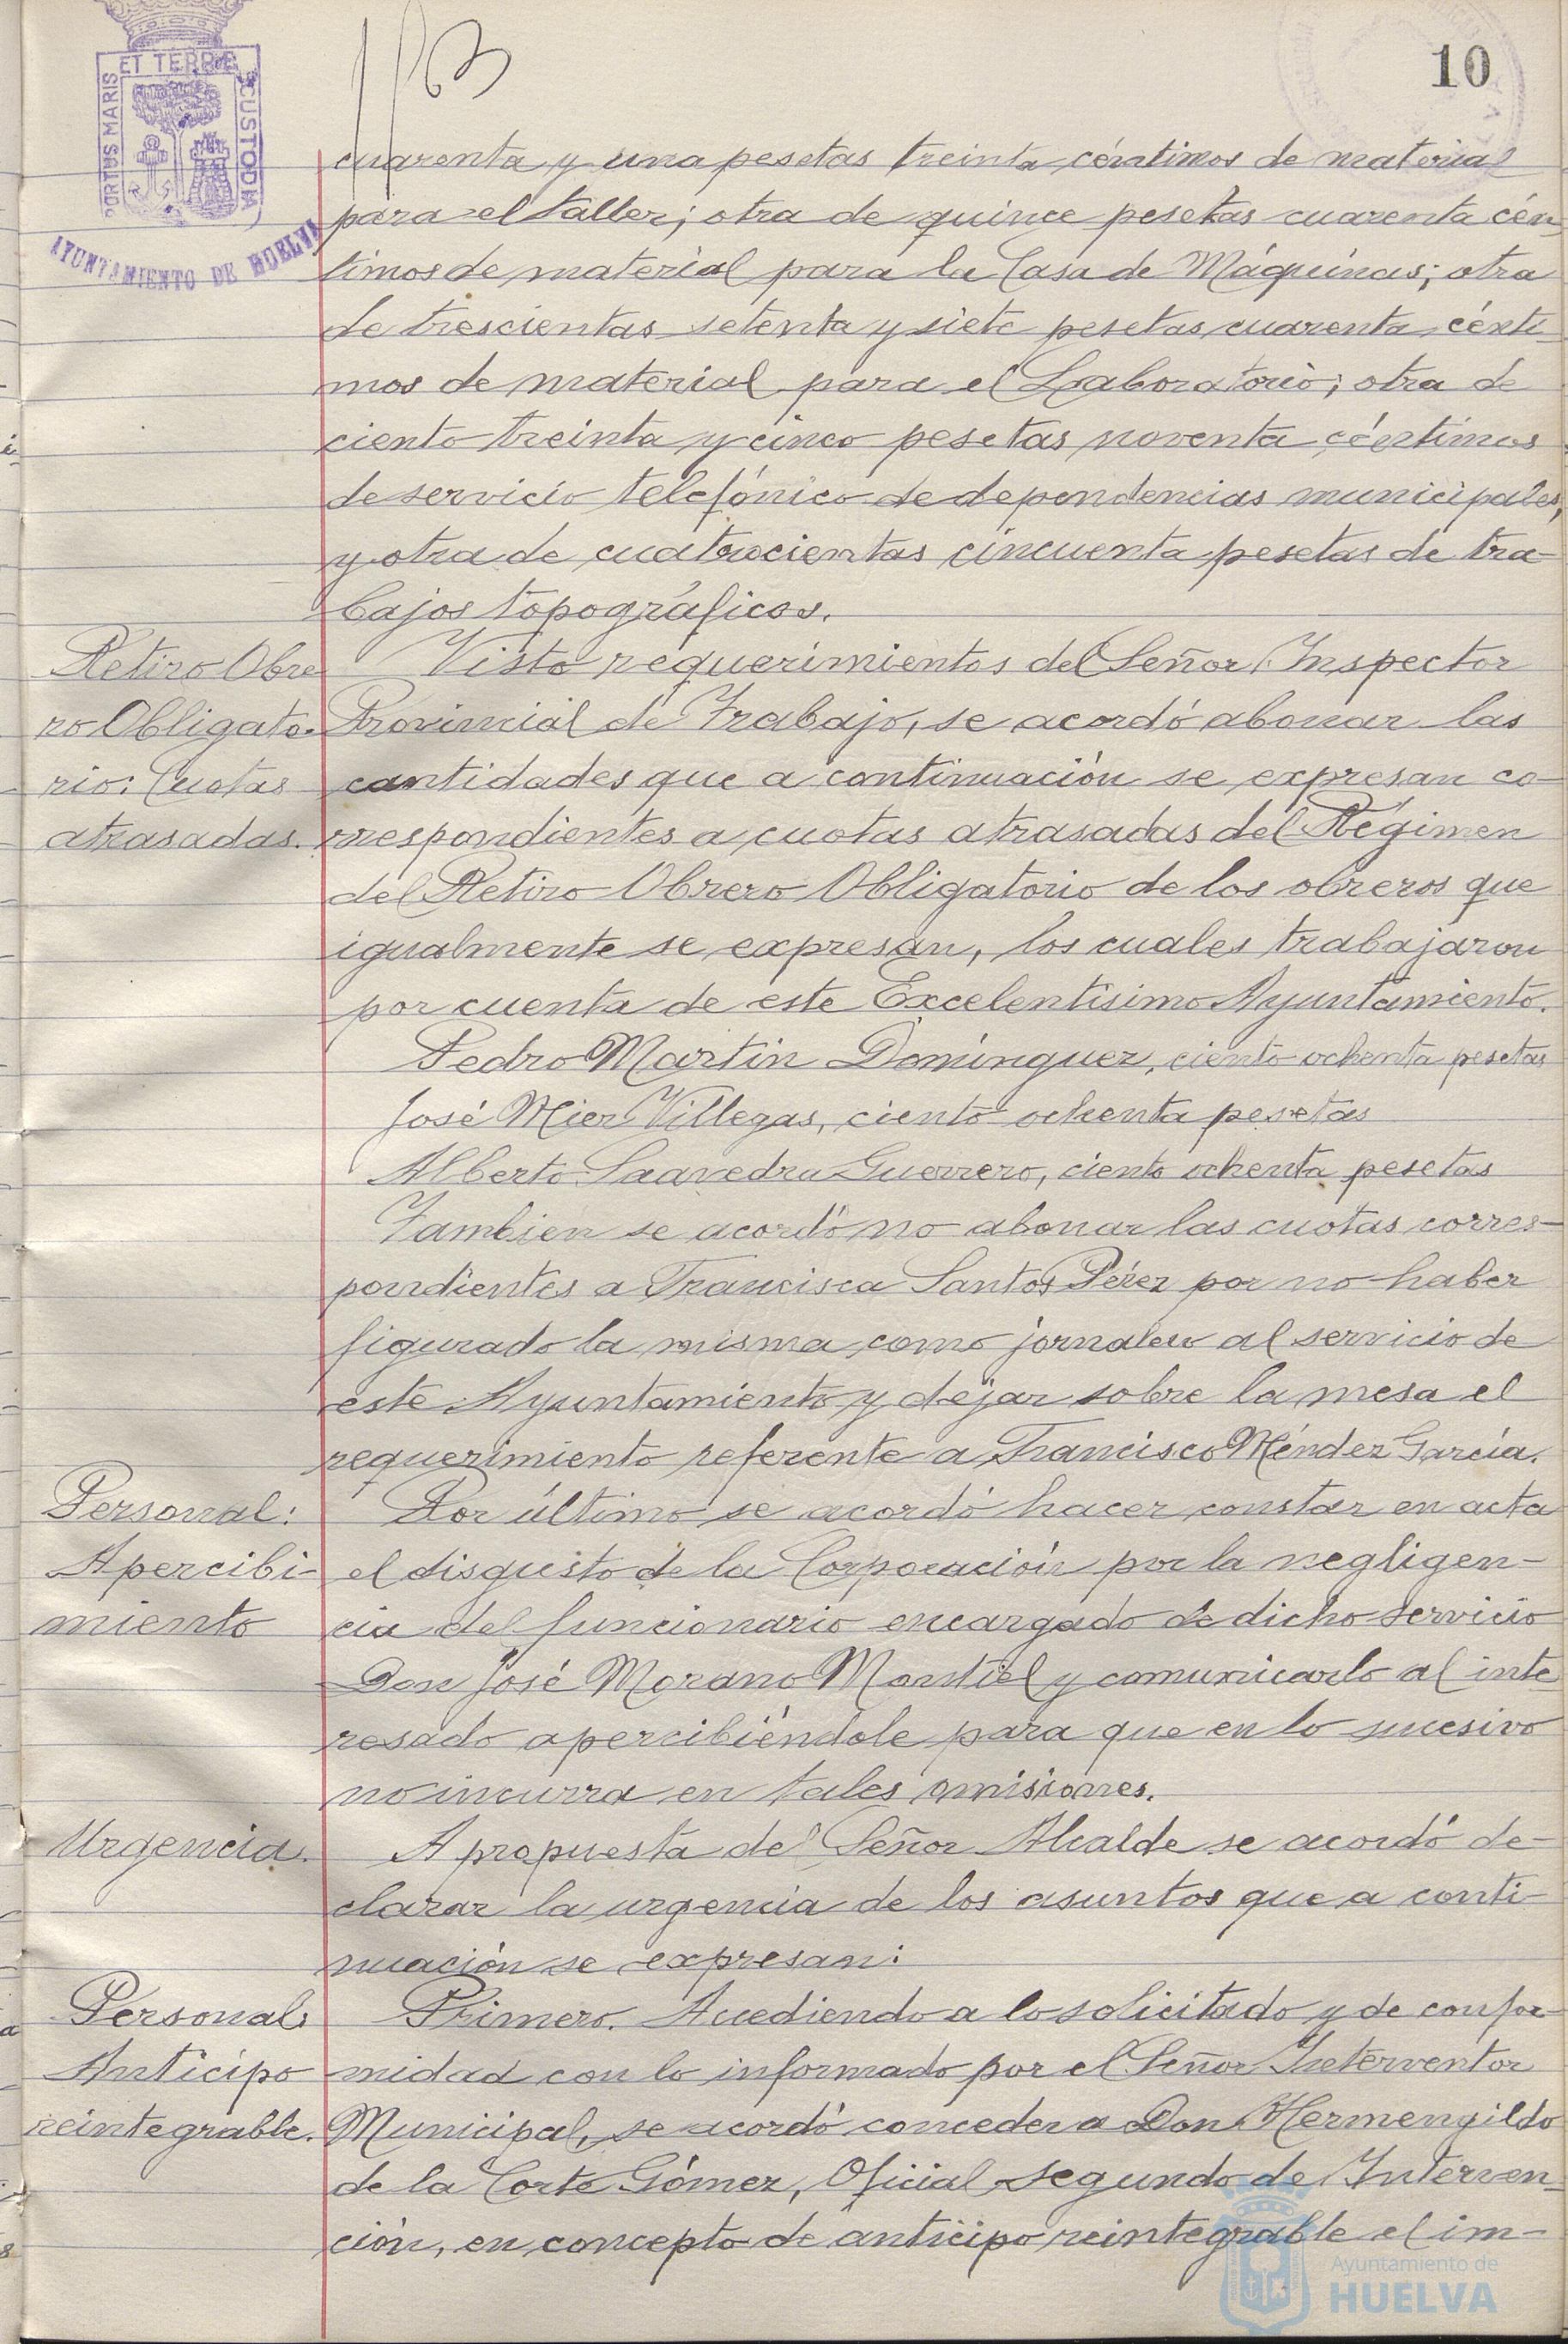 10
PORTUS MARIS ET TERRE CUSTODIA
AYUNTAMIENTO DE HUELVA
cuarenta y una pesetas treinta céntimos de material
para el taller; otra de quince pesetas cuarenta cén-
timos de material para la Casa de Máquinas; otra
de trescientas setenta y siete pesetas cuarenta cénti-
mos de material para el Laboratorio; otra de
ciento treinta y cinco pesetas noventa céntimos
de servicio telefónico de dependencias municipales,
y otra de cuatrocientas cincuenta pesetas de tra-
bajos topográficos.
Retiro Obre-
ro Obligato-
rio: Cuotas
atrasadas.
Visto requerimientos del Señor Inspector
Provincial de Trabajo, se acordó abonar las
cantidades que a continuación se expresan co-
rrespondientes a cuotas atrasadas del Régimen
del Retiro Obrero Obligatorio de los obreros que
igualmente se expresan, los cuales trabajaron
por cuenta de este Excelentísimo Ayuntamiento.
Pedro Martín Domínguez, ciento ochenta pesetas
José Mier Villegas, ciento ochenta pesetas
Alberto Saavedra Guerrero, ciento ochenta pesetas
Tambien se acordó no abonar las cuotas corres-
pondientes a Francisca Santos Pérez por no haber
figurado la misma como jornalero al servicio de
este Ayuntamiento y dejar sobre la mesa el
requerimiento referente a Francisco Méndez García.
Personal:
Apercibi-
miento
Por último se acordó hacer constar en acta
el disgusto de la Corporación por la negligen-
cia del funcionario encargado de dicho servicio
Don José Morano Montiel y comunicarlo al inte
resado apercibiéndole para que en lo sucesivo
no incurra en tales omisiones.
Urgencia.
A propuesta del Señor Alcalde se acordó de-
clarar la urgencia de los asuntos que a conti-
nuación se expresan:
Personal:
Anticipo
reintegrable.
Primero. Accediendo a lo solicitado y de confor-
midad con lo informado por el Señor Interventor
Municipal, se acordó conceder a Don Hermengildo
de la Corte Gómez, Oficial segundo de Interven-
ción, en concepto de anticipo reintegrable el im-
Ayuntamiento de
HUELVA